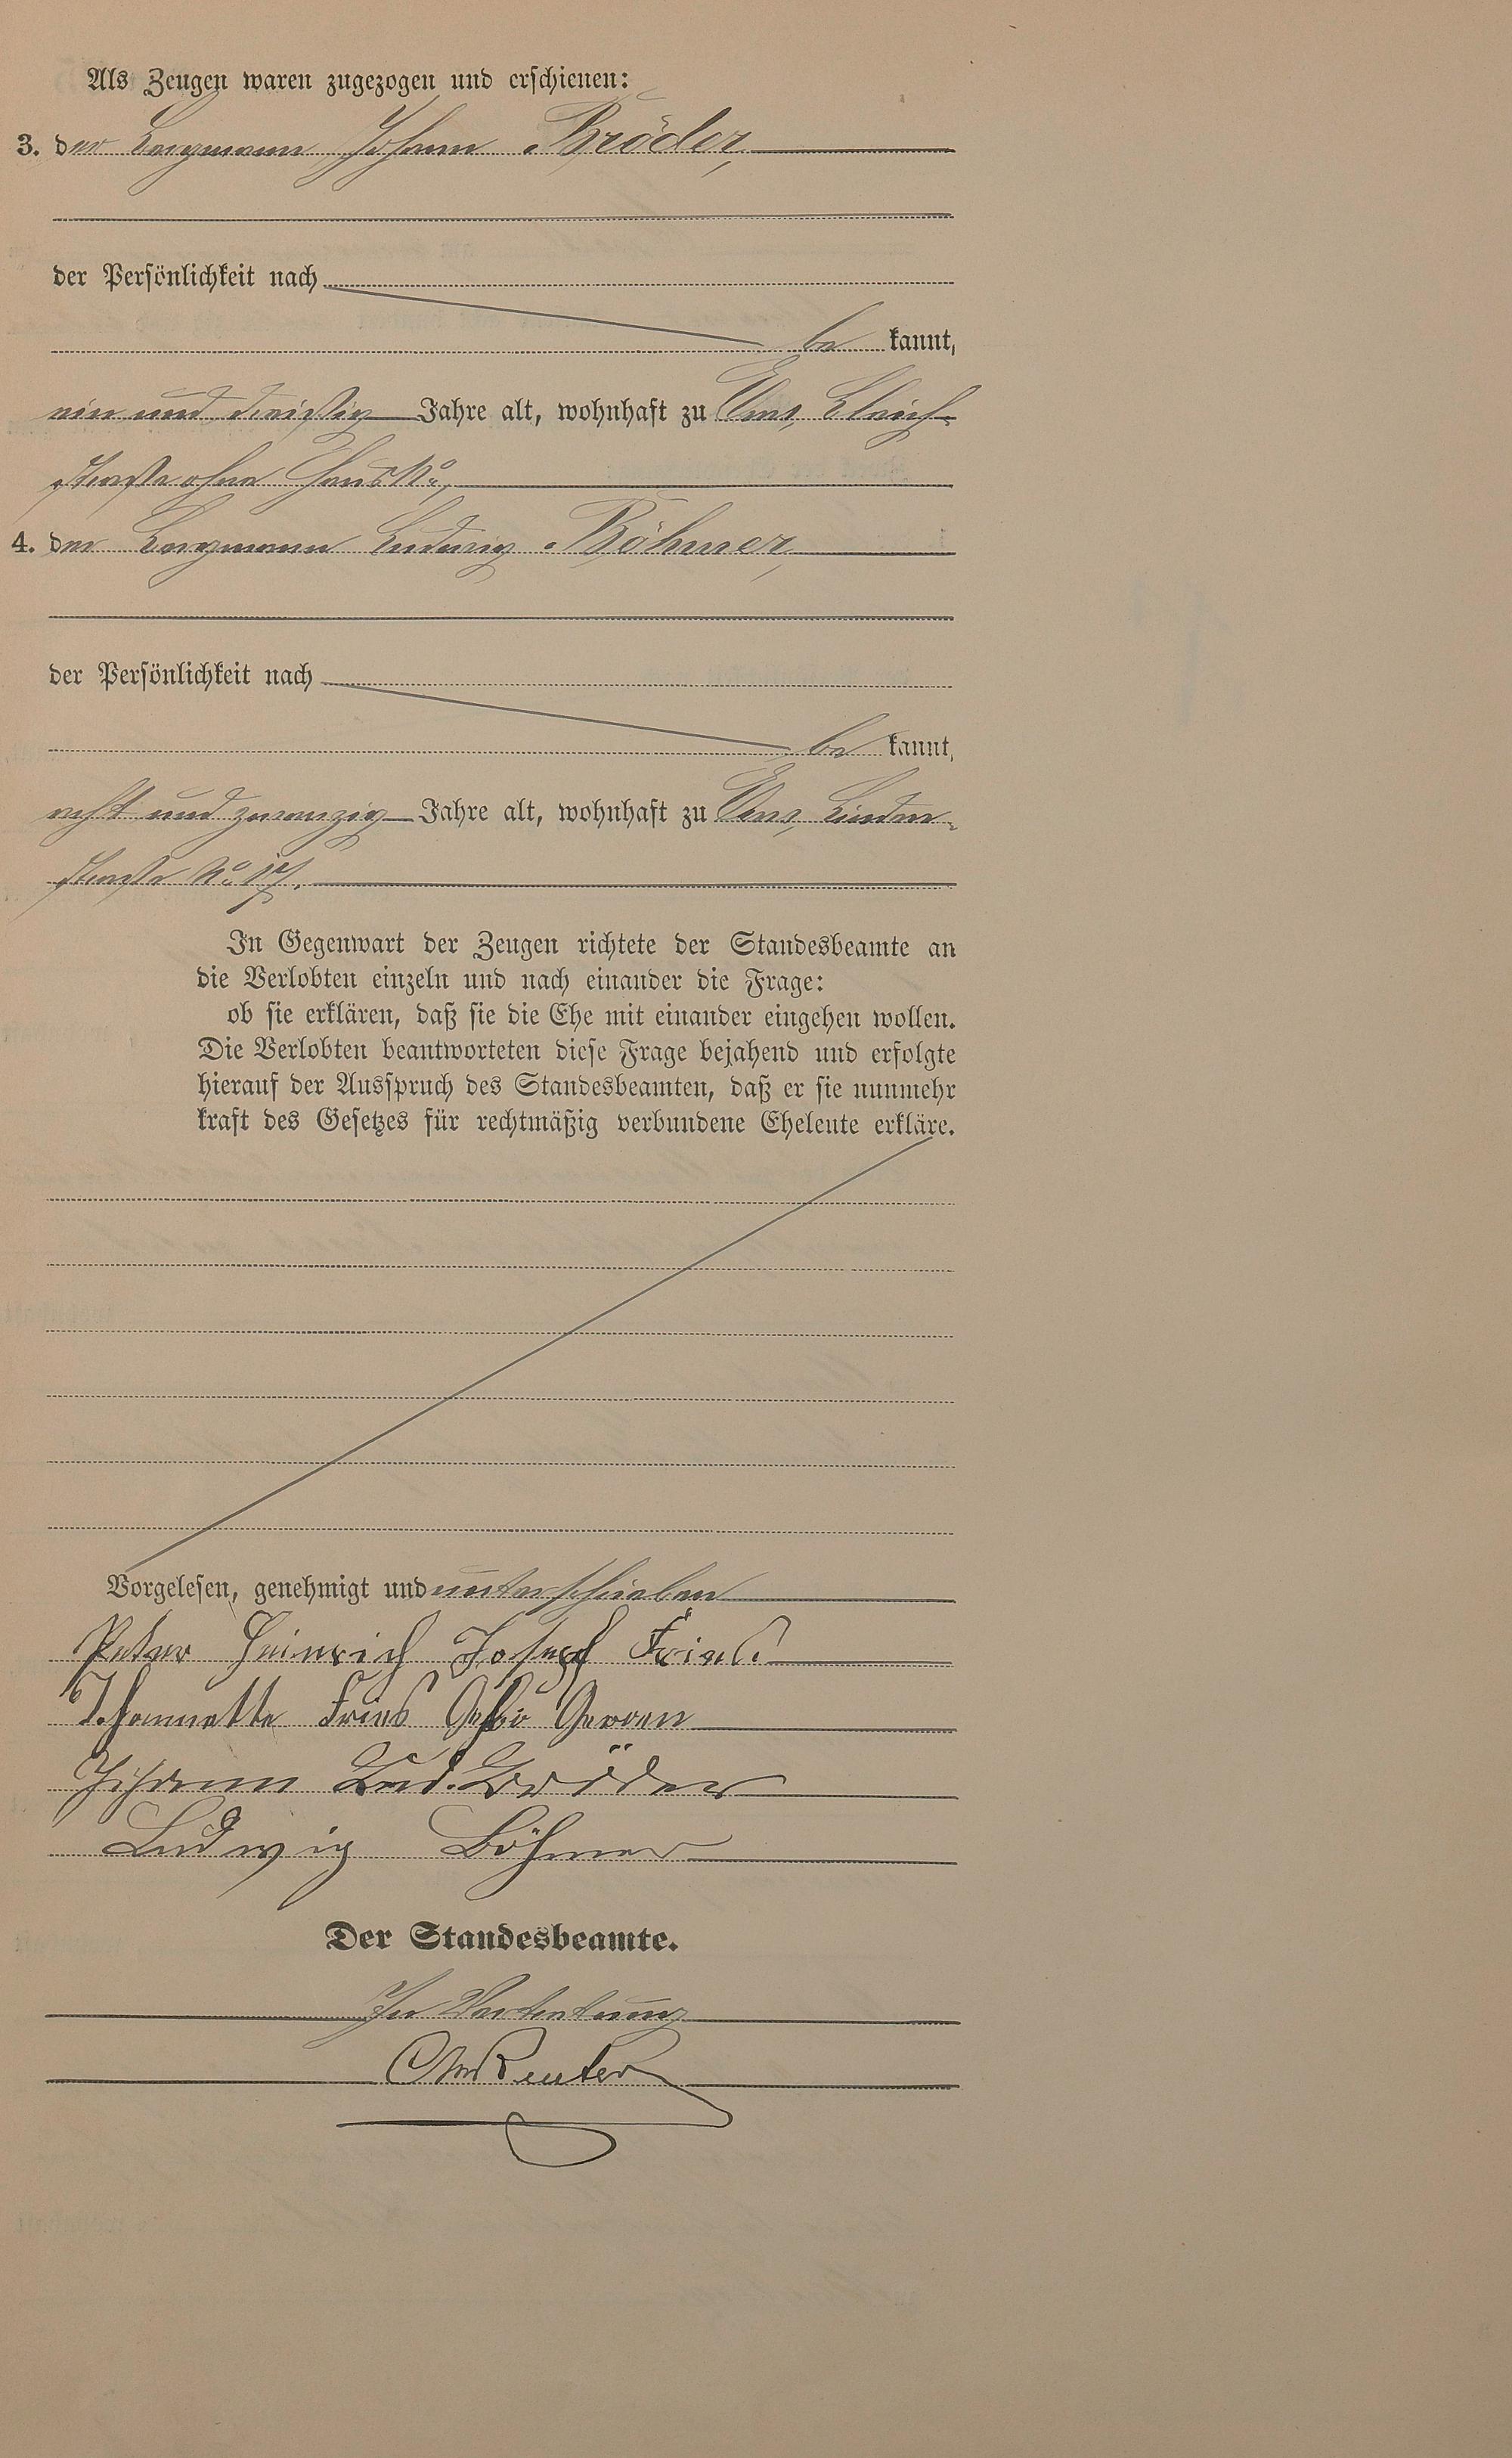 Als Zeugen waren zugezogen und erschienen:
3. der Bergmann Johann Bröder,
der Persönlichkeit nach
be kannt,
ein und dreißig Jahre alt, wohnhaft zu Ems, Bleich-
straße ohne Haus No,
4. der Bergmann Ludwig Böhmer,
der Persönlichkeit nach
be kannt,
acht und zwanzig Jahre alt, wohnhaft zu Ems, Linden-
straße No. 17.
In Gegenwart der Zeugen richtete der Standesbeamte an
die Verlobten einzeln und nach einander die Frage:
ob sie erklären, daß sie die Ehe mit einander eingehen wollen.
Die Verlobten beantworteten diese Frage bejahend und erfolgte
hierauf der Ausspruch des Standesbeamten, daß er sie nunmehr
kraft des Gesetzes für rechtmäßig verbundene Eheleute erkläre.
Vorgelesen, genehmigt und unterschrieben
Peter Heinrich Joseph Fries.
Fries
Johann Lud. Bröder
Ludwig Böhmer
Der Standesbeamte.
In Vertretung
Reuter